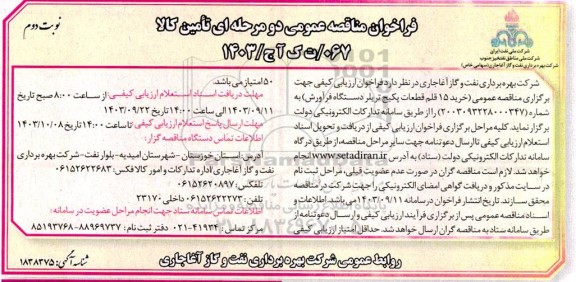 نوبت دوم
فراخوان مناقصه عمومی دو مرحله ای تأمین کالا
۰۶۷/ت ک آ ج/۱۴۰۳
شرکت ملی نفت ایران
شرکت ملی مناطق نفتخیز جنوب
شرکت بهره برداری نفت و گاز آغاجاری (سهامی خاص)
شرکت بهره برداری نفت و گاز آغاجاری در نظر دارد فراخوان ارزیابی کیفی جهت
برگزاری مناقصه عمومی (خرید ۱۵ قلم قطعات پکیج تریلر دستگاه فرآورش) به
شماره (۲۰۰۳۰۹۳۲۲۸۰۰۰۳۴۷) را از طریق سامانه تدارکات الکترونیکی دولت
برگزار نماید. کلیه مراحل برگزاری فراخوان ارزیابی کیفی از دریافت و تحویل اسناد
استعلام ارزیابی کیفی تا ارسال دعوتنامه جهت سایر مراحل مناقصه، از طریق درگاه
سامانه تدارکات الکترونیکی دولت (ستاد) به آدرس www.setadiran.ir انجام
خواهد شد. لازم است مناقصه گران در صورت عدم عضویت قبلی، مراحل ثبت نام
در سایت مذکور و دریافت گواهی امضای الکترونیکی را جهت شرکت در مناقصه
محقق سازند. تاریخ انتشار فراخوان در سامانه ۱۴۰۳/۰۹/۱۱ می باشد. اطلاعات و
اسناد مناقصه عمومی پس از برگزاری فرآیند ارزیابی کیفی و ارسال دعوتنامه از
طریق سامانه ستاد به مناقصه گران ارسال خواهد شد. حداقل امتیاز ارزیابی کیفی
۵۰ امتیاز می باشد.
مهلت دریافت اسناد استعلام ارزیابی کیفی: از ساعت ۸:۰۰ صبح تاریخ
۱۴۰۳/۰۹/۱۱ الی ساعت ۱۴:۰۰ تاریخ ۱۴۰۳/۰۹/۲۲
مهلت ارسال پاسخ استعلام ارزیابی کیفی: تا ساعت ۱۴:۰۰ تاریخ ۱۴۰۳/۱۰/۰۸
اطلاعات تماس دستگاه مناقصه گزار:
آدرس: استان خوزستان – شهرستان امیدیه – بلوار نفت – شرکت بهره برداری
نفت و گاز آغاجاری اداره تدارکات و امور کالا فکس: ۰۶۱۵۲۶۲۲۶۸۳
تلفکس: ۰۶۱۵۲۶۲۰۸۹۷
تلفن: ۰۶۱۵۲۶۲۲۲۷۲ داخلی: ۲۳۱۷۰
اطلاعات تماس سامانه ستاد جهت انجام مراحل عضویت در سامانه:
مرکز تماس: ۴۱۹۳۴-۰۲۱ دفتر ثبت نام: ۸۸۹۶۹۷۳۷-۸۵۱۹۳۷۶۸
روابط عمومی شرکت بهره برداری نفت و گاز آغاجاری
شناسه آگهی: ۱۸۳۸۳۷۵